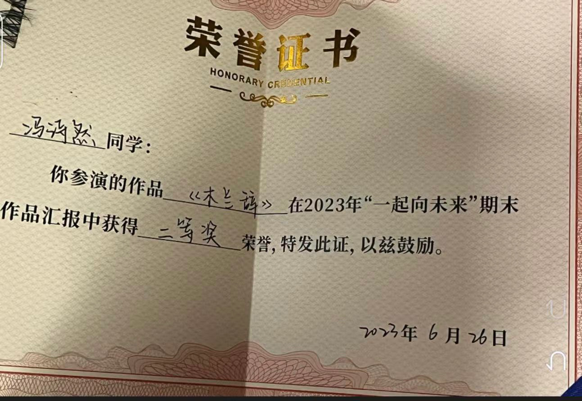 荣誉证书
HONORARY CREDENTIAL
冯诗然 同学：
你参演的作品《木兰辞》在2023年“一起向未来”期末
作品汇报中获得 二等奖 荣誉，特发此证，以兹鼓励。
2023年 6 月 26日